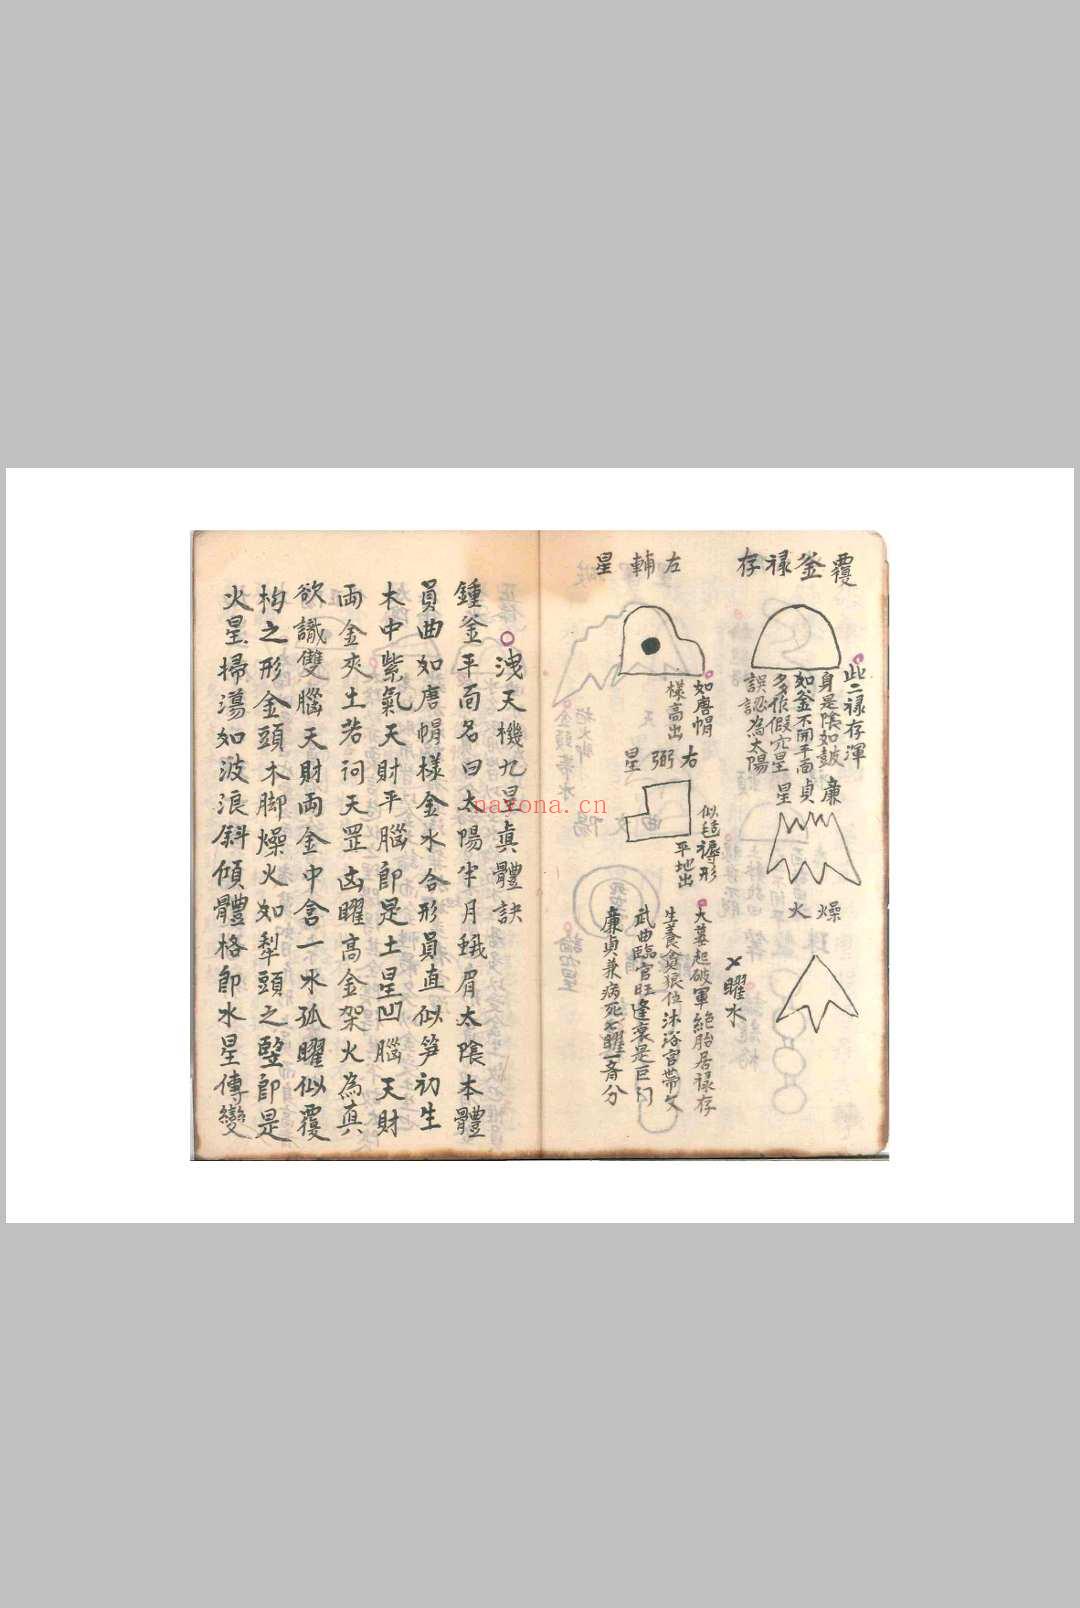 覆釜禄存
此二禄存渾
身是陰如皷
如釜不開平面
多作假穴星
誤認為太陽
廉貞星
燥火
左輔星
如唐帽
樣高出
右弼星
似毡褥形
平地出
乂曜水
大墓起破軍絶胎居禄存
生養貪狼位沐浴官帶文
武曲臨官旺逢衰是巨门
廉貞兼病死七曜一斉分
洩天機九星真體訣
鍾釜平面名曰太陽半月蛾眉太陰本體
員曲如唐帽樣金水合形員直似笋初生
木中紫氣天財平腦即是土星凹腦天財
両金夾土若祠天罡凶曜高金架火為真
欲識雙腦天財両金中含一水孤曜似覆
杓之形金頭木脚燥火如犁頭之竪即是
火星掃蕩如波浪斜傾體格即水星傳變
navona.cn